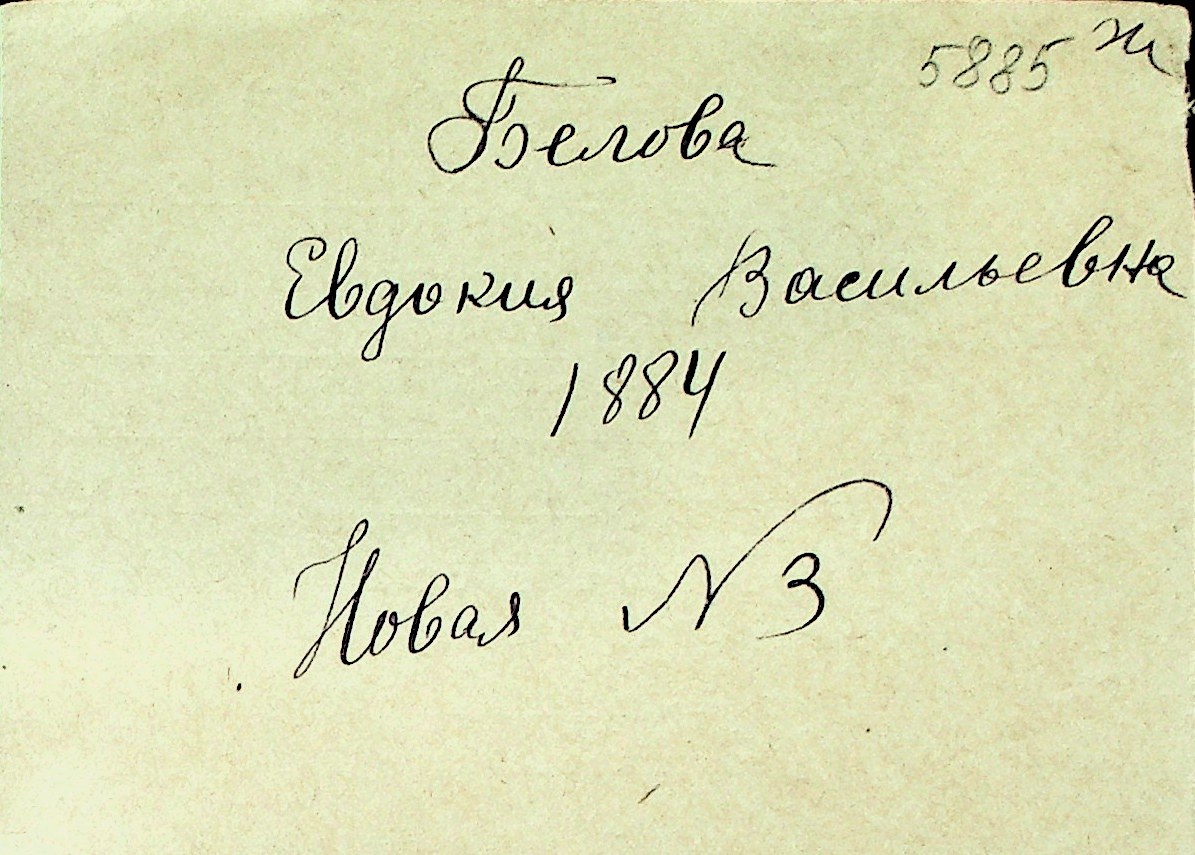 5885 ж
Белова
Евдокия Васильевна
1884
Новая N 3